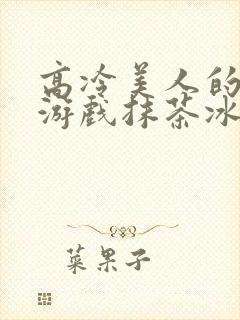 高冷美人的
游戏抹茶冰
菜果子